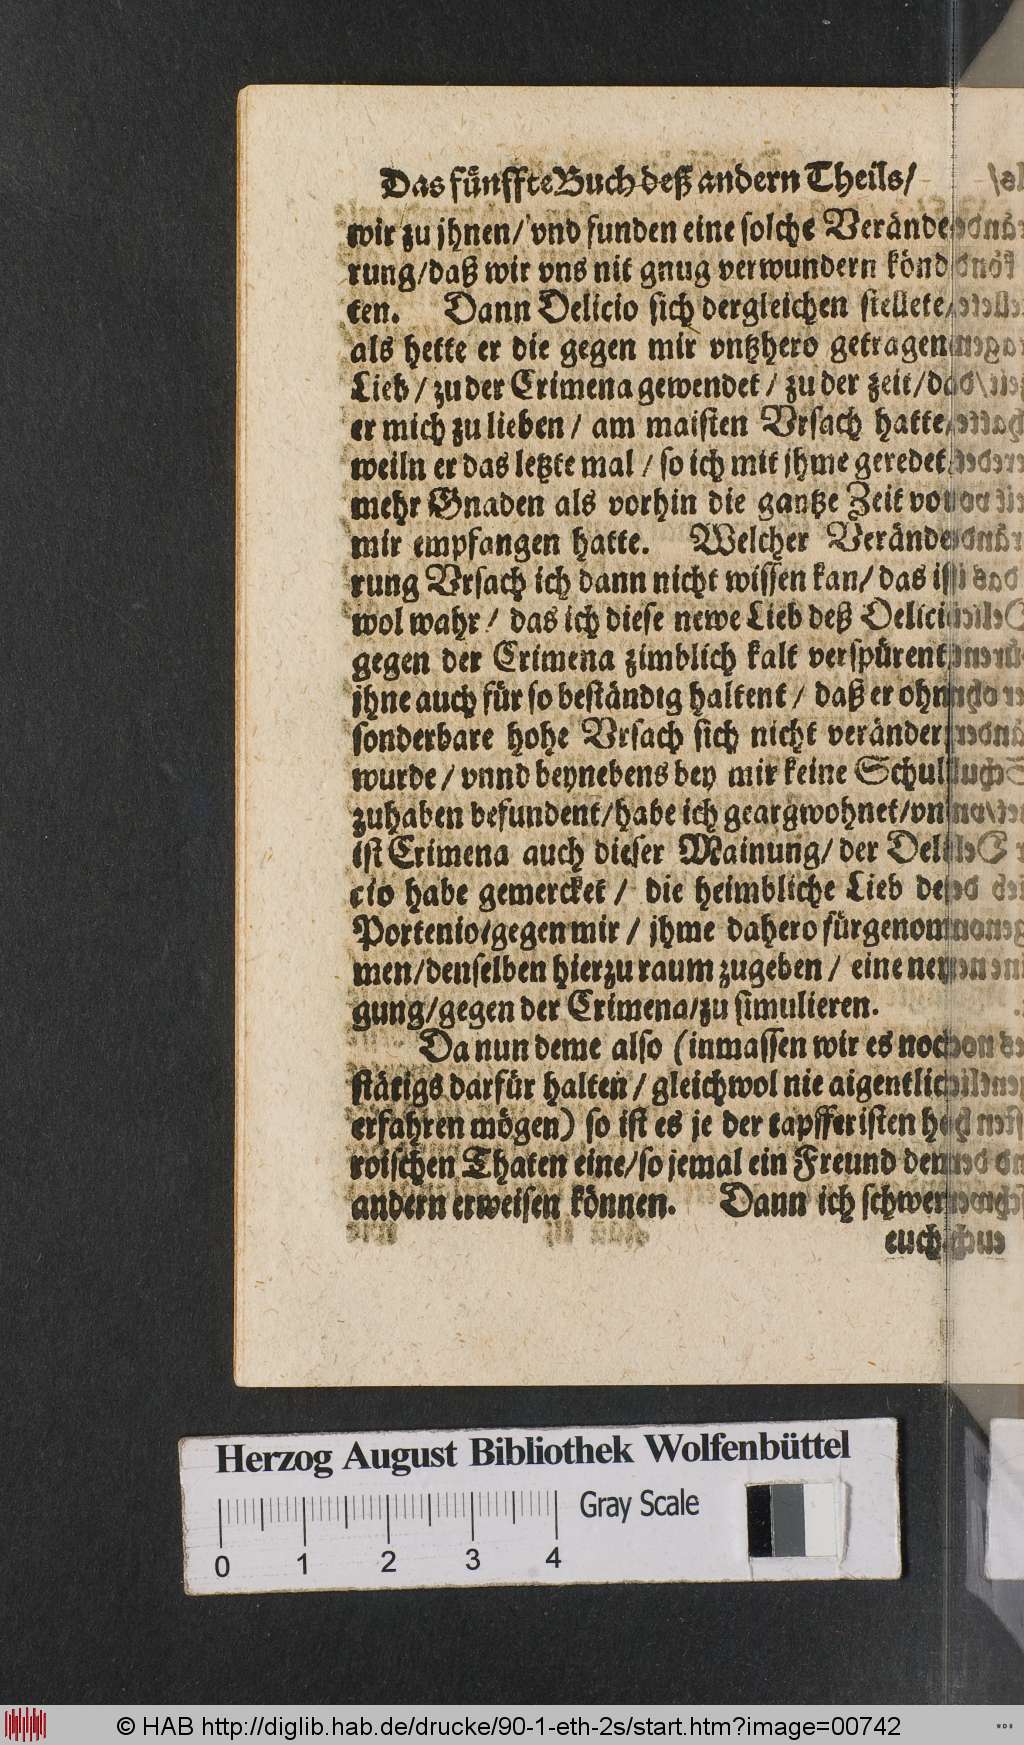 Das fünffte Buch deß andern Theils/
wir zu jhnen/ vnd funden eine solche Verände-
rung/daß wir vns nit gnug verwundern könd
ten. Dann Delicio sich dergleichen stellete/
als hette er die gegen mir vntzhero getragen
Lieb/ zu der Crimena gewendet/ zu der zeit/
er mich zu lieben/ am maisten Vrsach hatte/
weiln er das letzte mal/ so ich mit jhme geredet/
mehr Gnaden als vorhin die gantze Zeit von
mir empfangen hatte. Welcher Verände
rung Vrsach ich dann nicht wissen kan/ das ist
wol wahr/ das ich diese newe Lieb deß Delicii
gegen der Crimena zimblich kalt verspürent
jhne auch für so beständig haltent/ daß er ohn
sonderbare hohe Vrsach sich nicht verändern
wurde/ vnnd beynebens bey mir keine Schul
zuhaben befundent/habe ich geargwohnet/vn
ist Crimena auch dieser Mainung/ der Deli
cio habe gemercket/ die heimbliche Lieb deß
Portenio/gegen mir/ jhme dahero fürgenom
men/denselben hierzu raum zugeben/ eine ney
gung/gegen der Crimena/zu simulieren.
Da nun deme also (inmassen wir es noch
stätigs darfür halten/ gleichwol nie aigentlich
erfahren mögen) so ist es je der tapfferisten he
roischen Thaten eine/so jemal ein Freund dem
andern erweisen können. Dann ich schwer
euch
Herzog August Bibliothek Wolfenbüttel
Gray Scale
0 1 2 3 4
© HAB http://diglib.hab.de/drucke/90-1-eth-2s/start.htm?image=00742